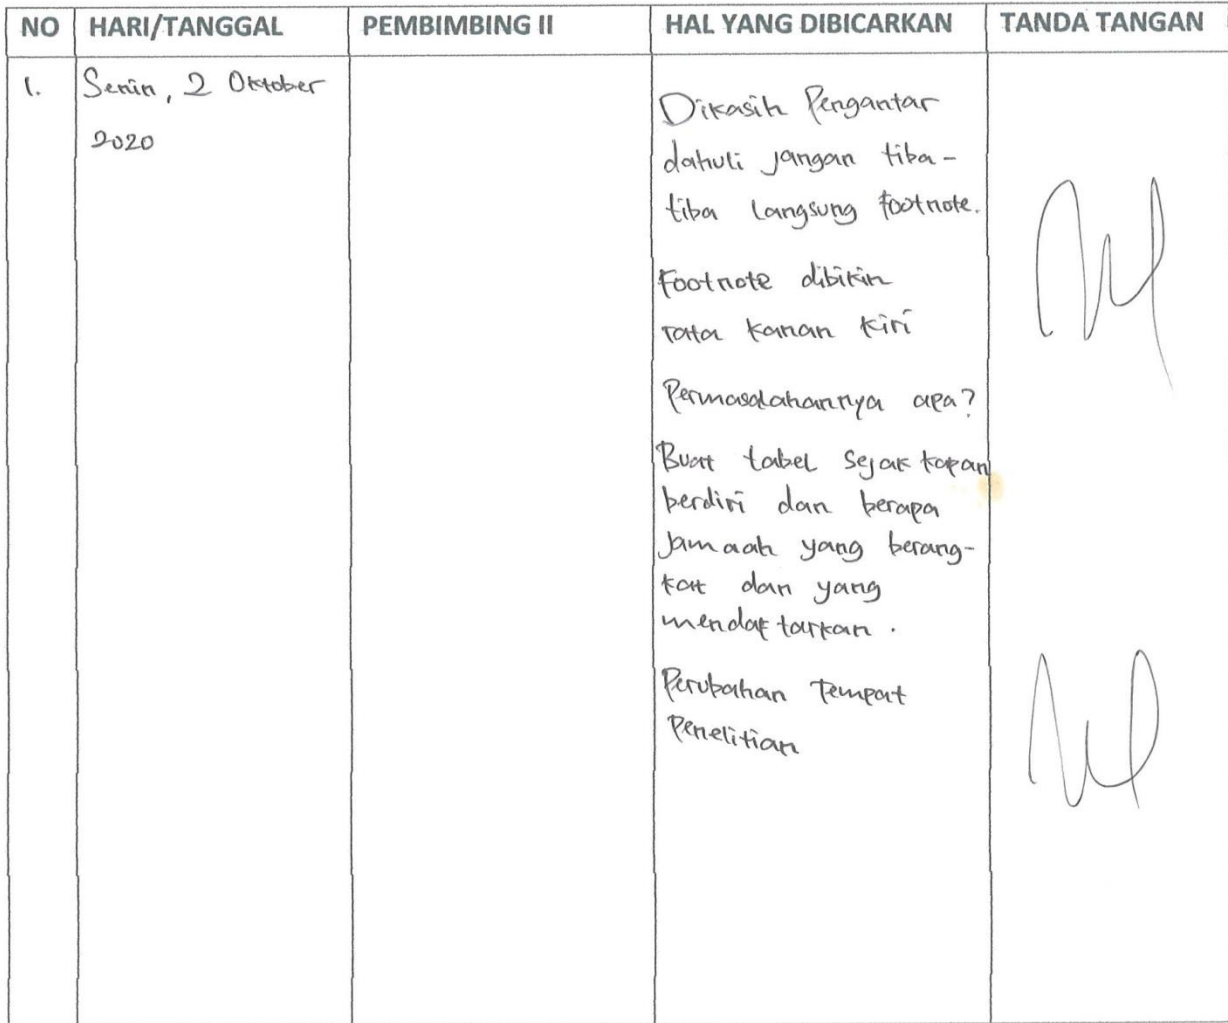 NO HARI/TANGGAL PEMBIMBING II HAL YANG DIBICARKAN TANDA TANGAN
1. Senin, 2 Oktober
2020
Dikasih Pengantar
dahuli jangan tiba-
tiba langsung footnote.
Footnote dibikin
rata kanan kiri
Permasalahannya apa?
Buat tabel sejak kapan
berdiri dan berapa
jamaah yang berang-
kat dan yang
mendaftarkan.
Perubahan Tempat
Penelitian